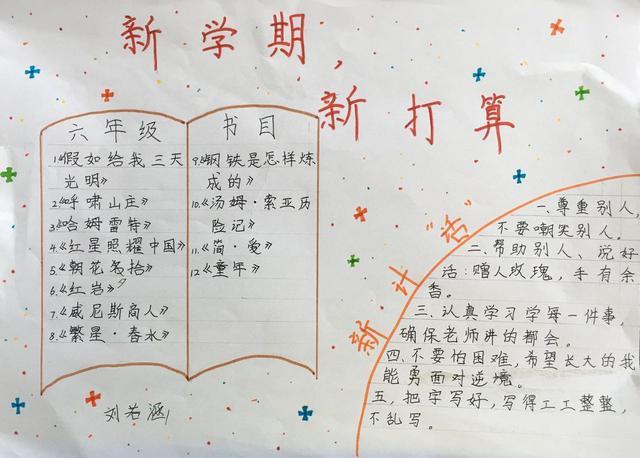 新学期，
新打算
六年级
书目
1.《假如给我三天
光明》
2.《呼啸山庄》
3.《哈姆雷特》
4.《红星照耀中国》
5.《朝花夕拾》
6.《红岩》
7.《威尼斯商人》
8.《繁星·春水》
9.《钢铁是怎样炼
成的》
10.《汤姆·索亚历
险记》
11.《简·爱》
12.《童年》
刘若涵
新计“活”
一、尊重别人，
不要嘲笑别人。
二、帮助别人、说好
话：赠人玫瑰，手有余
香。
三、认真学习学每一件事，
确保老师讲的都会。
四、不要怕困难，希望长大的我
能勇面对逆境。
五、把字写好，写得工工整整，
不乱写。